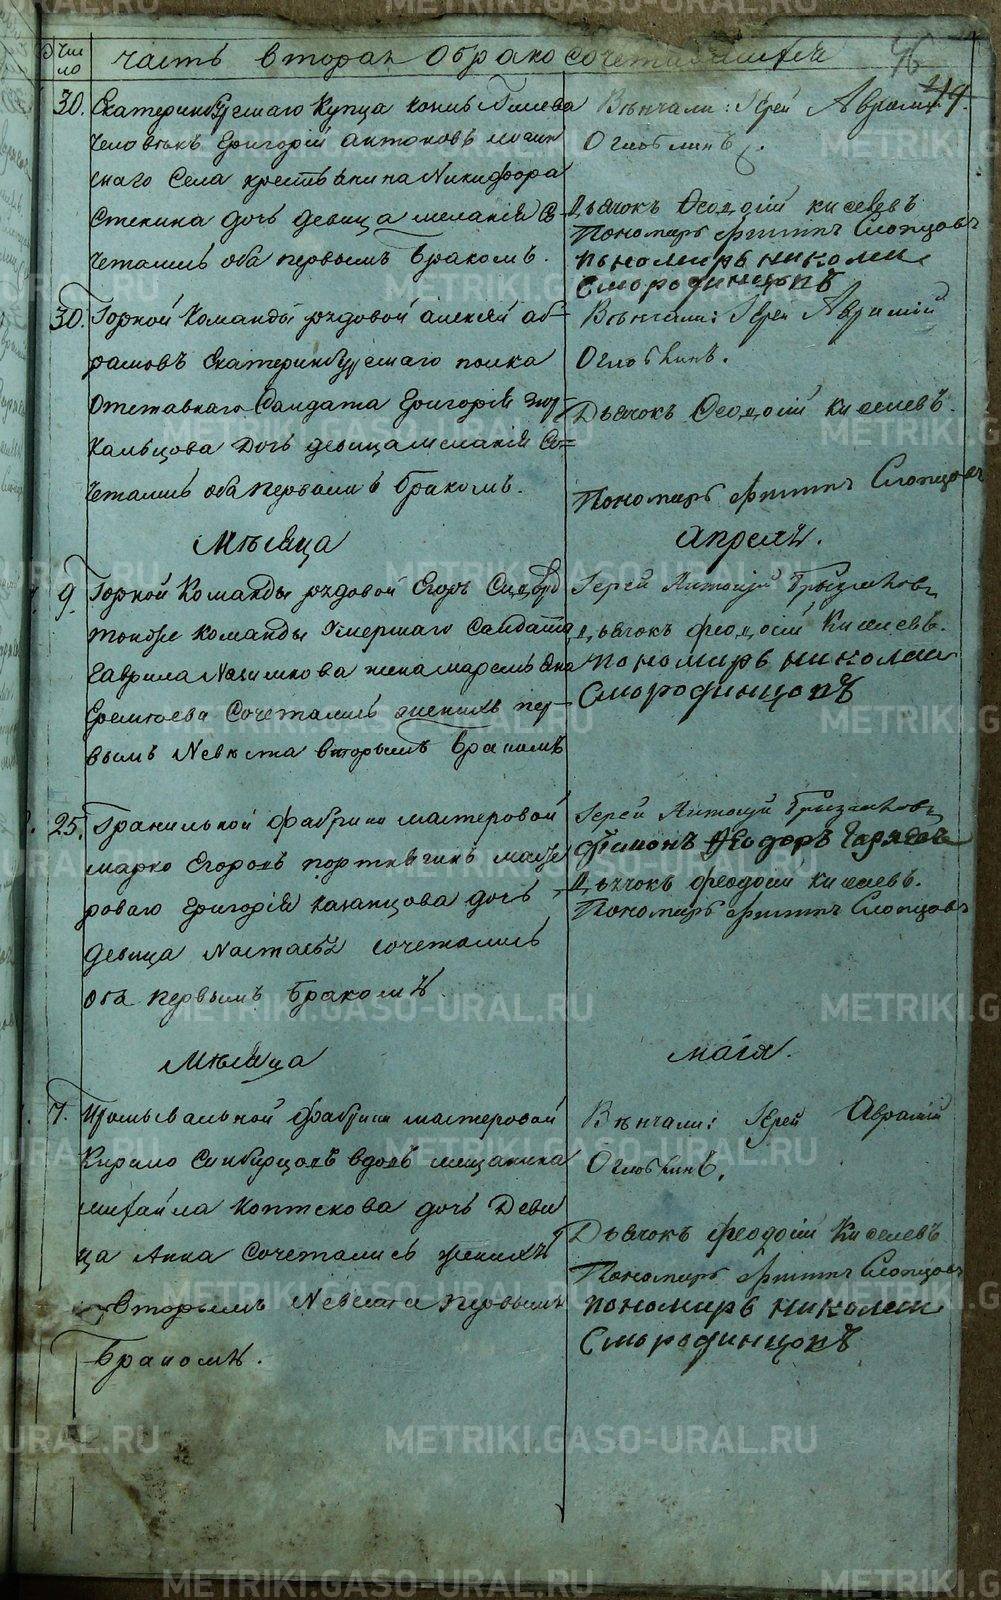 Число
часть вторая обракосочетавшихся
46
49.
30. Екатеринбургскаго Купца
человѣкъ Григорій Антоновъ
скаго Села крестьянина Никифора
дочь девица меланія Со-
четались оба первымъ бракомъ.
Вѣнчали: Іерей Аврамій
Оглоблинъ.
Дьячокъ Феодосій киселевъ
Пономарь Филиппъ Слопцовъ
пономарь николаи
Смородинцовъ
30. Горной Команды рядовой алексѣй аб-
рамовъ Екатеринбургскаго полка
Отставнаго Салдата Григорія
дочь девица меланія Со=
четались оба первымъ бракомъ.
Вѣнчали: Іерей Аврамій
Оглоблинъ.
Дьячокъ Феодосій киселевъ.
Пономарь Филиппъ Слопцовъ
Мѣсяца
Апреля.
9. Горной Команды рядовой Егоръ Сидоръ
тойже команды Умершаго Салдата
Гаврила жена
Еремѣева Сочетались женихъ пер-
вымъ Невѣста вторымъ бракомъ
Іерей Антоній
дьячокъ феодосій Киселевъ.
пономарь николаи
Смородинцовъ
25. Гранильной фабрики мастеровой
марко Егоровъ портнягинъ масте
роваго Григорія казанцова дочь
девица Настасья сочетались
оба первымъ бракомъ
Іерей Антоній
Феодоръ
Дьячокъ феодосій киселевъ.
Пономарь Филиппъ Слопцовъ
Мѣсяца
маія.
7. Промывальной фабрики мастеровой
Кирило Синбирцовъ вдовъ мещанина
михайла дочь Деви
ца Анна Сочетались женихъ
вторымъ Невеста первымъ
бракомъ.
Вѣнчали: Іерей Аврамій
Оглоблинъ.
Дьячокъ феодосій Киселевъ
Пономарь Филиппъ Слопцовъ
пономарь николаи
Смородинцовъ
METRIKI.GASO-URAL.RU